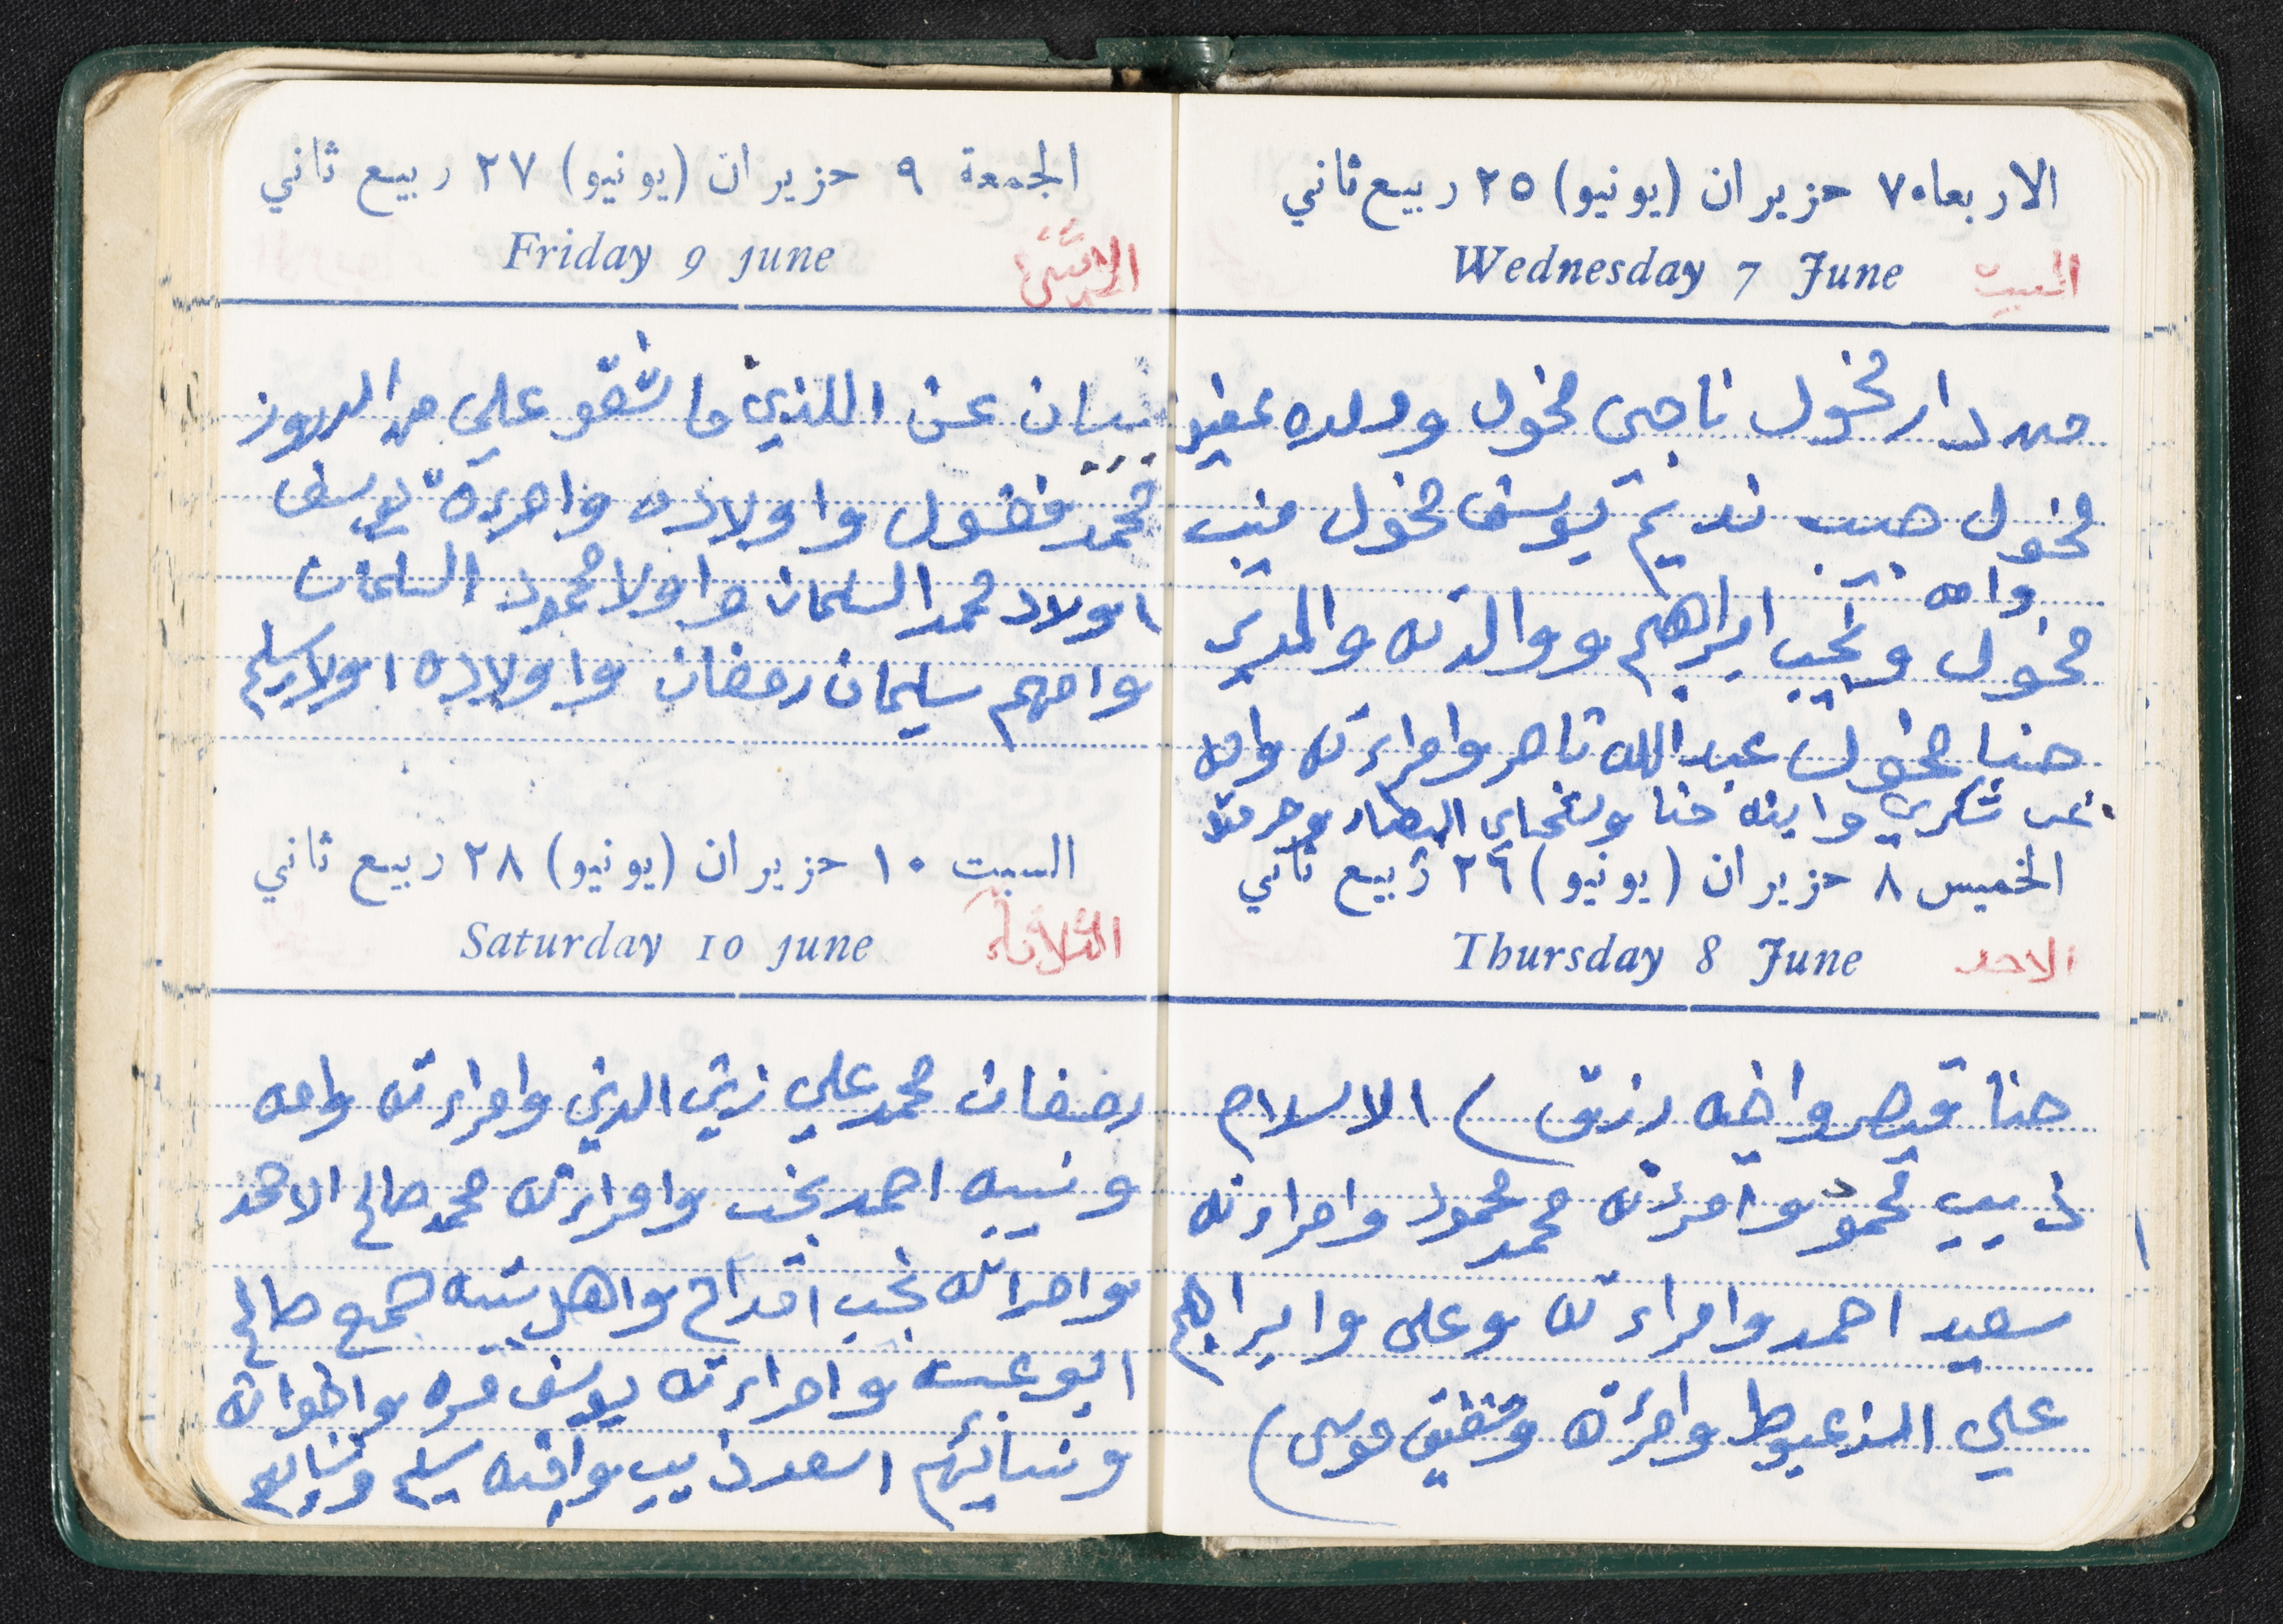 الاربعاء ٧ حزيران (يونيو) ٢٥ ربيع ثاني
Wednesday 7 June
السبت
من دار مخول ناجي مخول وولده عفيف
مخول حبيب نديم يوسف مخول منيب
وامه
مخول ونجيب ابراهيم ووالدته والمدير
حنا مخول عبدالله ناصر وامراءته وامه
شكري وابنه حنا البيطار وحرمته
الخميس ٨ حزيران (يونيو) ٢٦ ربيع ثاني
Thursday 8 June
الاحد
حنا قيصر واخيه رزق ) الاسلام
ذييب محمود وامرئته محمد محمود وامراءته
سعيد احمد وامراءته وعلي وابراهيم
علي الزعبوط وامرئته وشفيق موسى )
الجمعة ٩ حزيران (يونيو) ٢٧ ربيع ثاني
Friday 9 june
الاثنين
بيان عن اللذين ما شقو علي من الدروز
محمد فضول واولاده وامرءته يوسف
اولاد محمد السلمان واولاد محمود السلمان
وامهم سليمان رمضان واولاده اولاد سليم
السبت ١٠ حزيران (يونيو) ٢٨ ربيع ثاني
Saturday 10 june
الثلاثاء
رمضان محمد علي زين الدين وامراءته وامه
ونسيبه احمد نجيب وامراءته محمد صالح الاحمد
وامراته نجيب اقداح واهل بيته جميع صالح
ابو عبيد وامراءته يوسف مره واخوانه
ونسائهم اسعد ذييب وابنه سليم ونسايهم